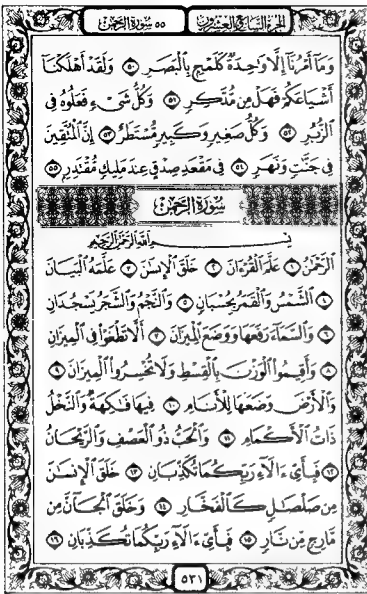 الجزء السابع والعشرون ٥٥ سورة الرحمن
وَمَآ أَمْرُنَآ إِلَّا وَٰحِدَةٌ كَلَمْحٍۭ بِٱلْبَصَرِ ٥٠ وَلَقَدْ أَهْلَكْنَآ
أَشْيَاعَكُمْ فَهَلْ مِن مُّدَّكِرٍ ٥١ وَكُلُّ شَىْءٍ فَعَلُوهُ فِى
ٱلزُّبُرِ ٥٢ وَكُلُّ صَغِيرٍ وَكَبِيرٍ مُّسْتَطَرٌ ٥٣ إِنَّ ٱلْمُتَّقِينَ
فِى جَنَّٰتٍ وَنَهَرٍ ٥٤ فِى مَقْعَدِ صِدْقٍ عِندَ مَلِيكٍ مُّقْتَدِرٍۭ ٥٥
سُورَةُ الرَّحْمٰن
بِسْمِ ٱللَّهِ ٱلرَّحْمَٰنِ ٱلرَّحِيمِ
ٱلرَّحْمَٰنُ ١ عَلَّمَ ٱلْقُرْءَانَ ٢ خَلَقَ ٱلْإِنسَٰنَ ٣ عَلَّمَهُ ٱلْبَيَانَ
٤ ٱلشَّمْسُ وَٱلْقَمَرُ بِحُسْبَانٍ ٥ وَٱلنَّجْمُ وَٱلشَّجَرُ يَسْجُدَانِ
٦ وَٱلسَّمَآءَ رَفَعَهَا وَوَضَعَ ٱلْمِيزَانَ ٧ أَلَّا تَطْغَوْا۟ فِى ٱلْمِيزَانِ
٨ وَأَقِيمُوا۟ ٱلْوَزْنَ بِٱلْقِسْطِ وَلَا تُخْسِرُوا۟ ٱلْمِيزَانَ ٩
وَٱلْأَرْضَ وَضَعَهَا لِلْأَنَامِ ١٠ فِيهَا فَٰكِهَةٌ وَٱلنَّخْلُ
ذَاتُ ٱلْأَكْمَامِ ١١ وَٱلْحَبُّ ذُو ٱلْعَصْفِ وَٱلرَّيْحَانُ
١٢ فَبِأَىِّ ءَالَآءِ رَبِّكُمَا تُكَذِّبَانِ ١٣ خَلَقَ ٱلْإِنسَٰنَ
مِن صَلْصَٰلٍ كَٱلْفَخَّارِ ١٤ وَخَلَقَ ٱلْجَآنَّ مِن
مَّارِجٍ مِّن نَّارٍ ١٥ فَبِأَىِّ ءَالَآءِ رَبِّكُمَا تُكَذِّبَانِ ١٦
٥٣١